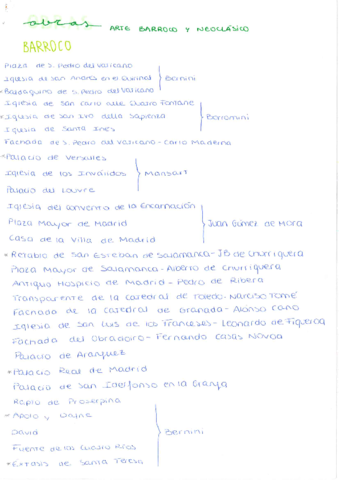 obras ARTE BARROCO Y NEOCLÁSICO
BARROCO
Plaza de S. Pedro del Vaticano
Iglesia de San Andrés en el Quirinal
Bernini
Baldaquino de S. Pedro del Vaticano
Iglesia de San Carlo alle Quatro Fontane
Iglesia de San Ivo della Sapienza
Borromini
Iglesia de Santa Inés
Fachada de S. Pedro del Vaticano - Carlo Maderna
Palacio de Versalles
Iglesia de los Inválidos
Mansart
Palacio del Louvre
Iglesia del Convento de la Encarnación
Plaza Mayor de Madrid
Juan Gómez de Mora
Casa de la Villa de Madrid
Retablo de San Esteban de Salamanca - JB de Churriguera
Plaza Mayor de Salamanca - Alberto de Churriguera
Antiguo Hospicio de Madrid - Pedro de Ribera
Transparente de la Catedral de Toledo - Narciso Tomé
Fachada de la Catedral de Granada - Alonso Cano
Iglesia de San Luis de los Franceses - Leonardo de Figueroa
Fachada del Obradoiro - Fernando Casas Novoa
Palacio de Aranjuez
Palacio Real de Madrid
Palacio de San Ildefonso en la Granja
Rapto de Proserpina
Apolo y Dafne
David
Bernini
Fuente de los Cuatro Ríos
Éxtasis de Santa Teresa